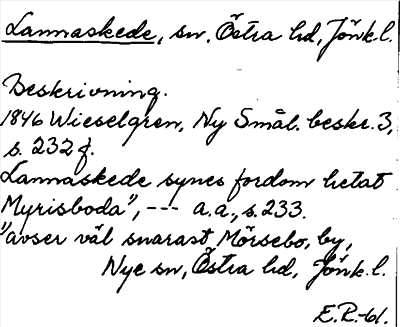 Lannaskede, sn, Östra hd, Jönk.l.
Beskrivning.
1846 Wieselgren, Ny Smål. beskr. 3,
s. 232 f.
Lannaskede synes fordom hetat
Myrisboda", --- a.a., s. 233.
"avser väl snarast Mörsebo, by,
Nye sn, Östra hd, Jönk.l.
E.R-bl.